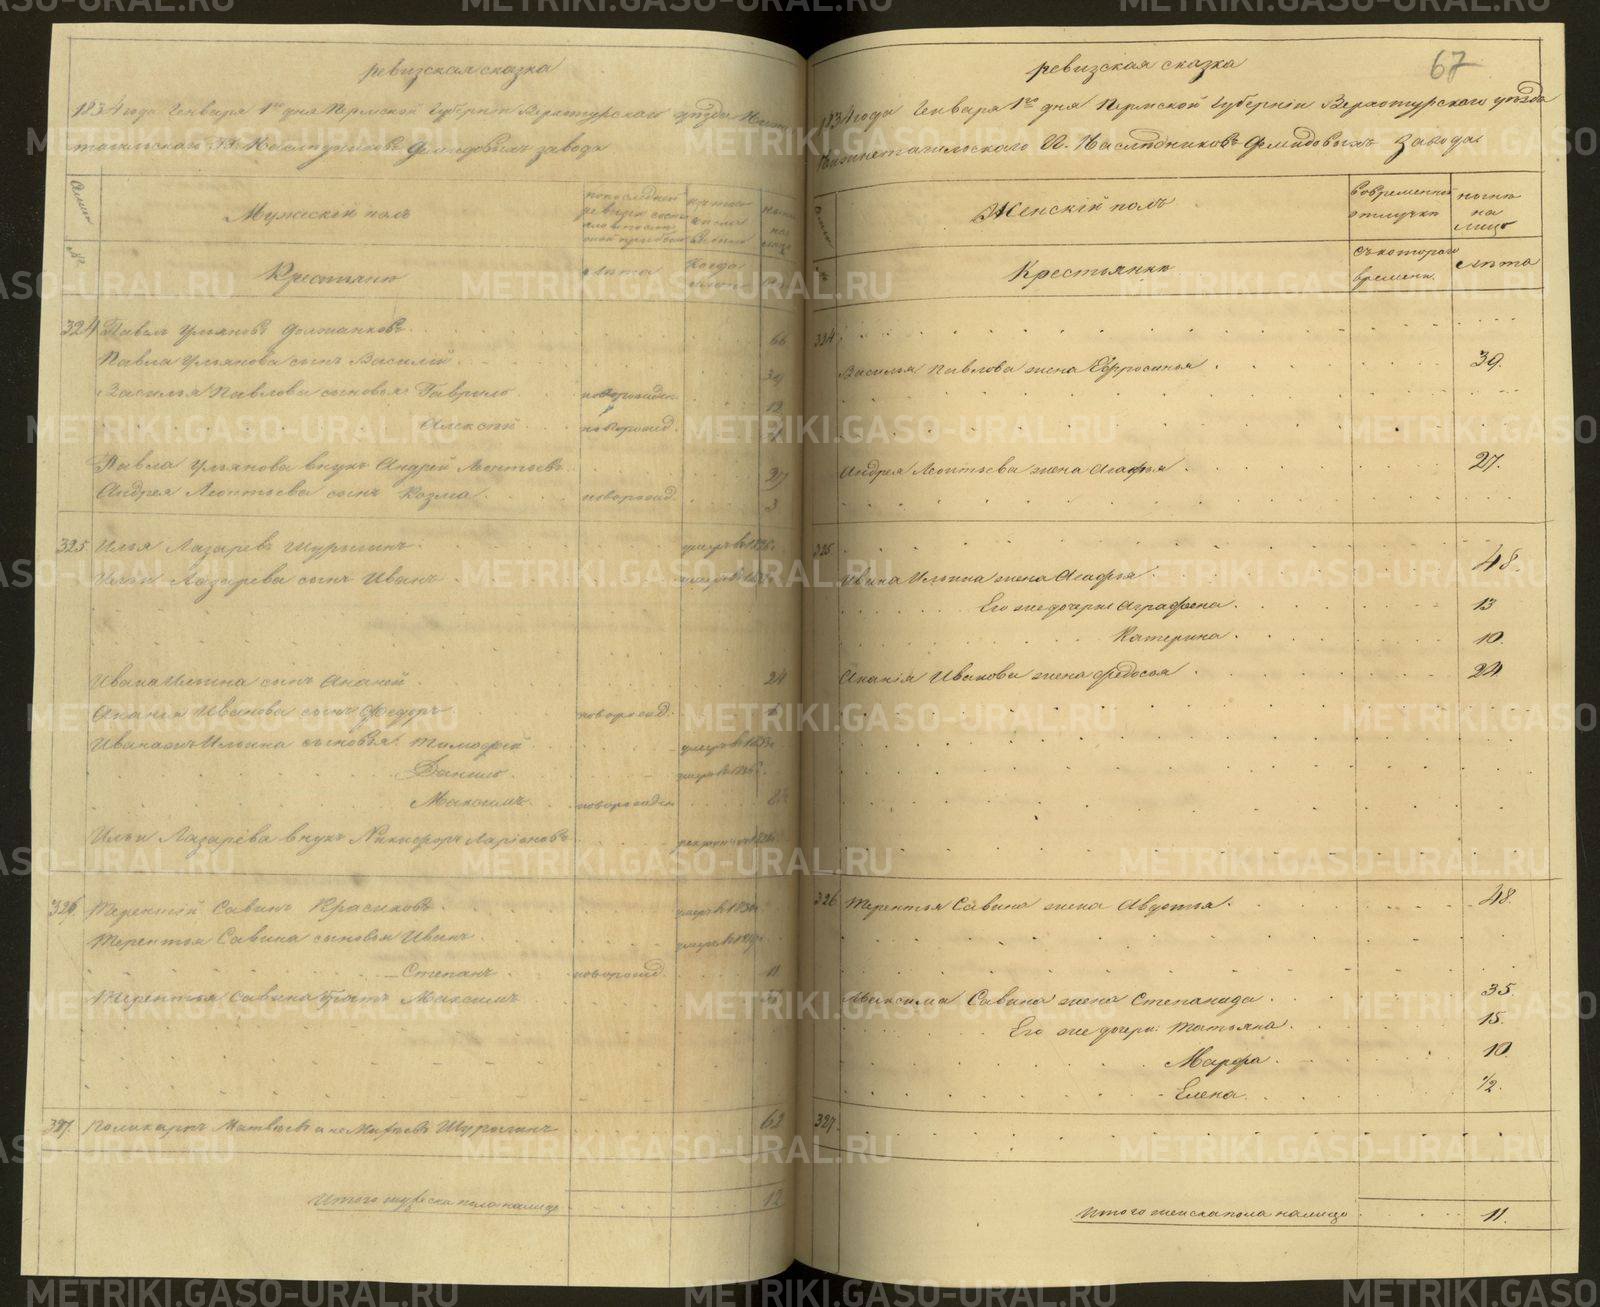 ревизская сказка
1834 года Генваря 1го дня Пермской Губернии Верхотурскаго уезда
тагильскаго ГГ. Наследниковъ Демидовыхъ завода
Мужескiй полъ
Крестьяне
лета
324 Павелъ Ульяновъ Долганковъ 66
Павла Ульянова сынъ Василiй
Василья Павлова сыновья Гаврило новорожден. 12
Алексей новорожд.
Павла Ульянова внукъ Андрей Леонтьевъ 27
Андрея Леонтьева сынъ Козма новорожд. 3
325 Илья Лазаревъ Шурыгинъ
Ильи Лазарева сынъ Иванъ
Ивана Ильина сынъ Ананей 24
Ананiя Иванова сынъ Федоръ новорожд.
Ивана Ильина сыновья Тимофей
Данило
Максимъ новорожден
Ильи Лазарева внукъ Никифоръ Ларiоновъ
326 Терентiй Савинъ Красиковъ
Терентья Савина сыновья Иванъ
Степанъ новорожд. 11
Терентья Савина братъ Максимъ
327 Поликарпъ Матвеевъ а не Марковъ Шурыгинъ 62
Итого мужеска пола налицо 12
67
ревизская сказка
1834 года Генваря 1го дня Пермской Губернiи Верхотурскаго уезда
Нижнетагильскаго ГГ. Наследниковъ Демидовыхъ Завода
Женскiй полъ
во временной отлучке
ныне на лицо
Крестьянки
съ котораго времени
лета
324
Василья Павлова жена Ефросинья 39.
Андрея Леонтьева жена Агафья 27.
325
Ивана Ильина жена Агафья 48.
Его же дочери Аграфена 13
Катерина 10.
Ананiя Иванова жена Федосья 24
326 Терентья Савина жена Авдотья 48.
Максима Савина жена Степанида 35.
Его же дочери: Татьяна 15.
Марфа 10.
Елена 1/2.
327
Итого женска пола налицо 11.
METRIKI.GASO-URAL.RU